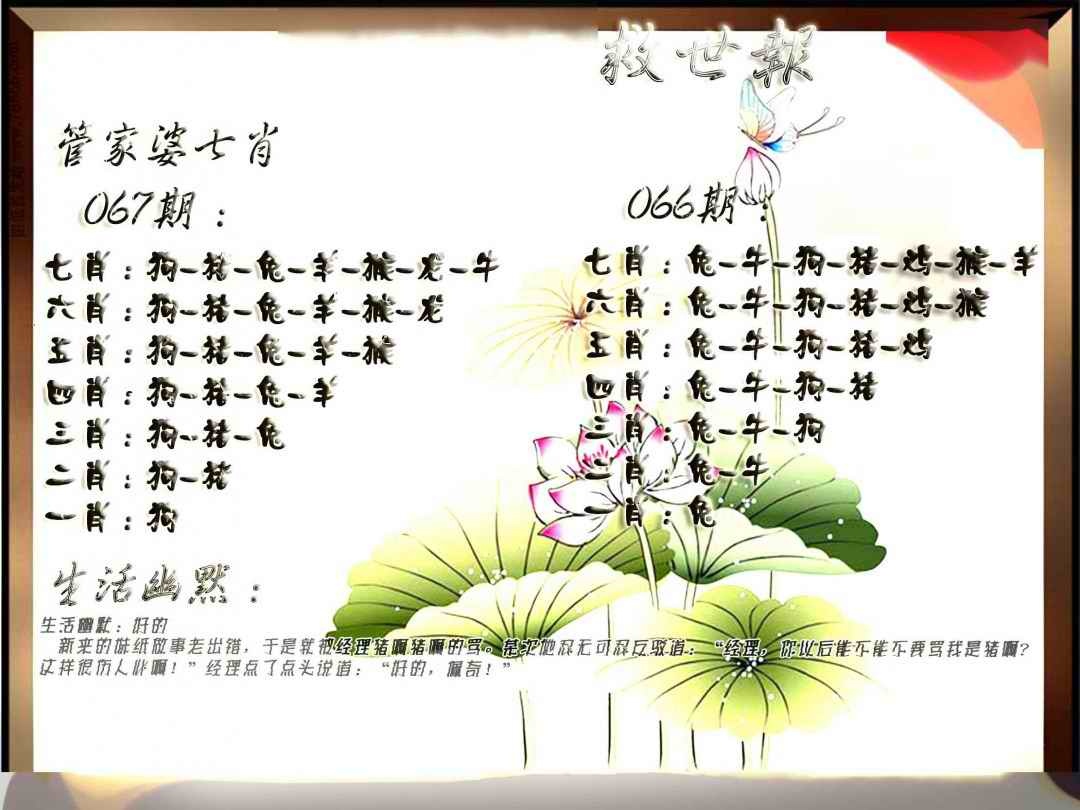 救世報
管家婆七肖
067期：
七肖：狗-猪-兔-羊-猴-龙-牛
六肖：狗-猪-兔-羊-猴-龙
五肖：狗-猪-兔-羊-猴
四肖：狗-猪-兔-羊
三肖：狗-猪-兔
二肖：狗-猪
一肖：狗
066期：
七肖：兔-牛-狗-猪-鸡-猴-羊
六肖：兔-牛-狗-猪-鸡-猴
五肖：兔-牛-狗-猪-鸡
四肖：兔-牛-狗-猪
三肖：兔-牛-狗
二肖：兔-牛
一肖：兔
生活幽默：
生活幽默：好的
新来的 做事老出错，于是就被经理猪啊猪啊的骂。是 他忍无可忍反驳道：“经理，你以后能不能不再骂我是猪啊?
这样很伤人 啊！”经理点了点头说道：“好的，佩奇！”